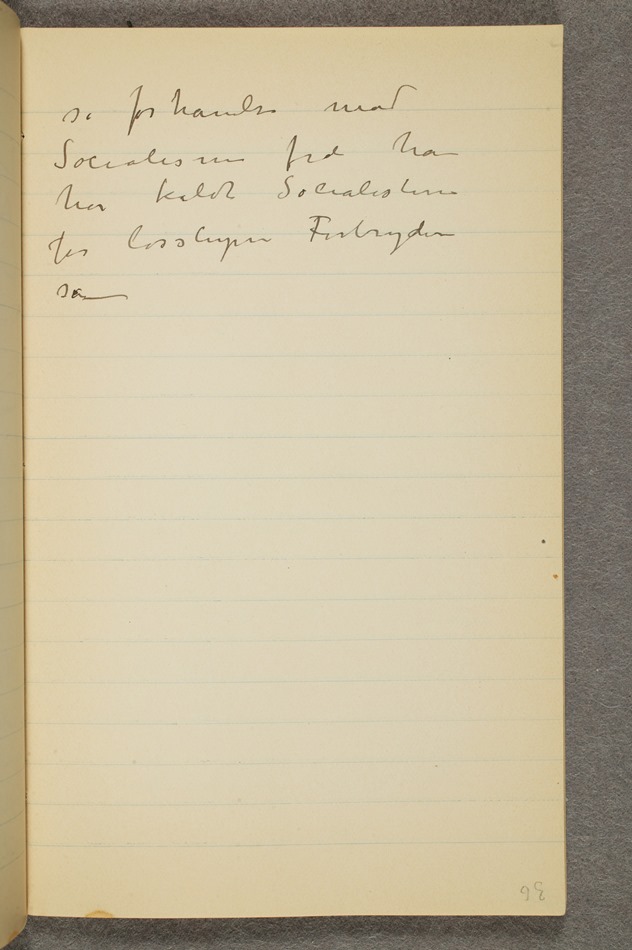 så forhandle med
Socialismen fod han
har kaldt Socialisterne
for losslupne Forbrydere
så
36